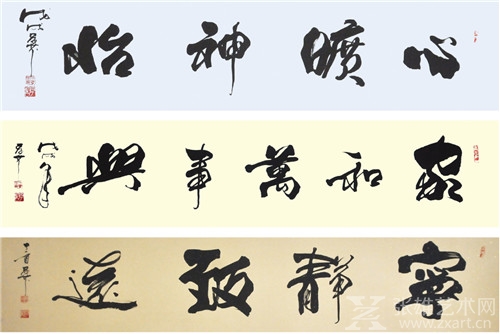 心曠神怡
家和萬事興
寧靜致遠
张雄艺术网
www.zxart.cn